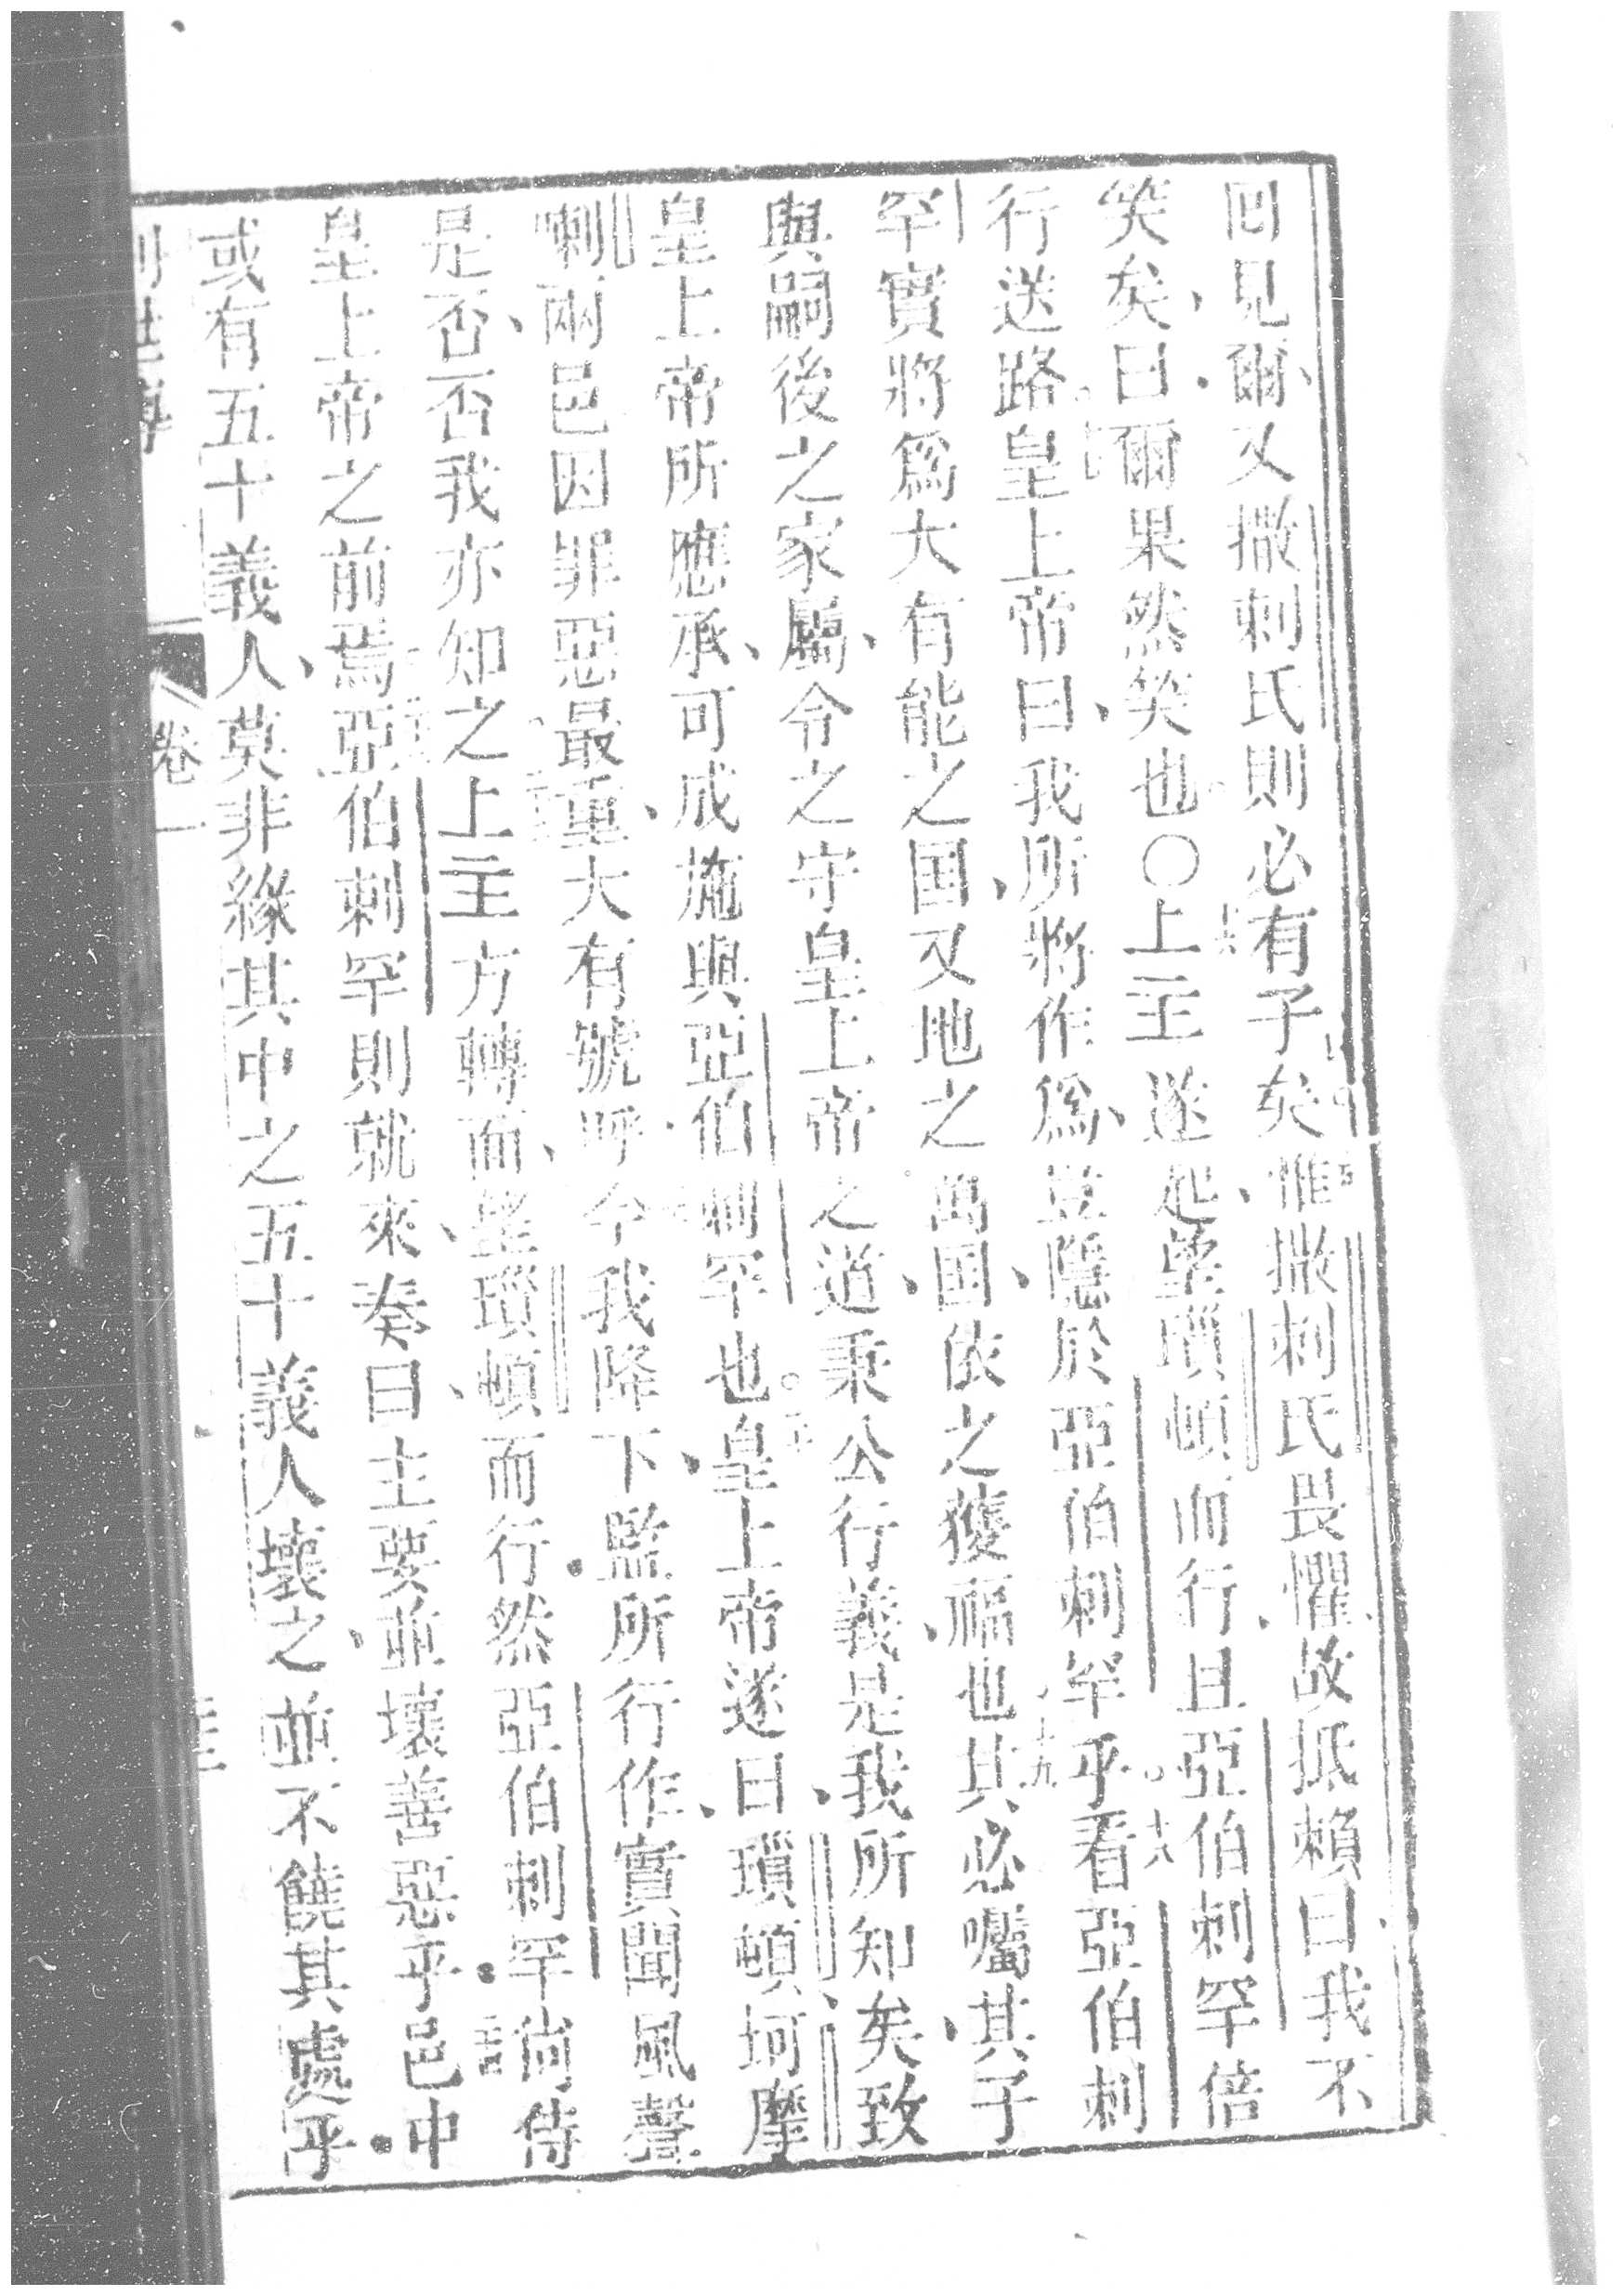 囘見爾又撒剌氏則必有子矣惟撒剌氏畏懼故抵賴曰我不
笑矣曰爾果然笑也〇上主遂起望瑣頓而行且亞伯剌罕倍
行送路皇上帝曰我所將作爲豈隱於亞伯剌罕乎看亞伯剌
罕實將爲大有能之国又地之萬国依之獲福也其必囑其子
與嗣後之家屬令之守皇上帝之道秉公行義是我所知矣致
皇上帝所應承可成施與亞伯剌罕也皇上帝遂曰瑣頓坷摩
喇兩邑因罪惡最重大有號呼今我降下監所行作實聞風聲
是否否我亦知之上主方轉面望瑣頓而行然亞伯剌罕尙侍
皇上帝之前焉亞伯剌罕則就來奏曰主要並壞善惡乎邑中
或有五十義人莫非緣其中之五十義人壞之並不饒其處乎
卷一